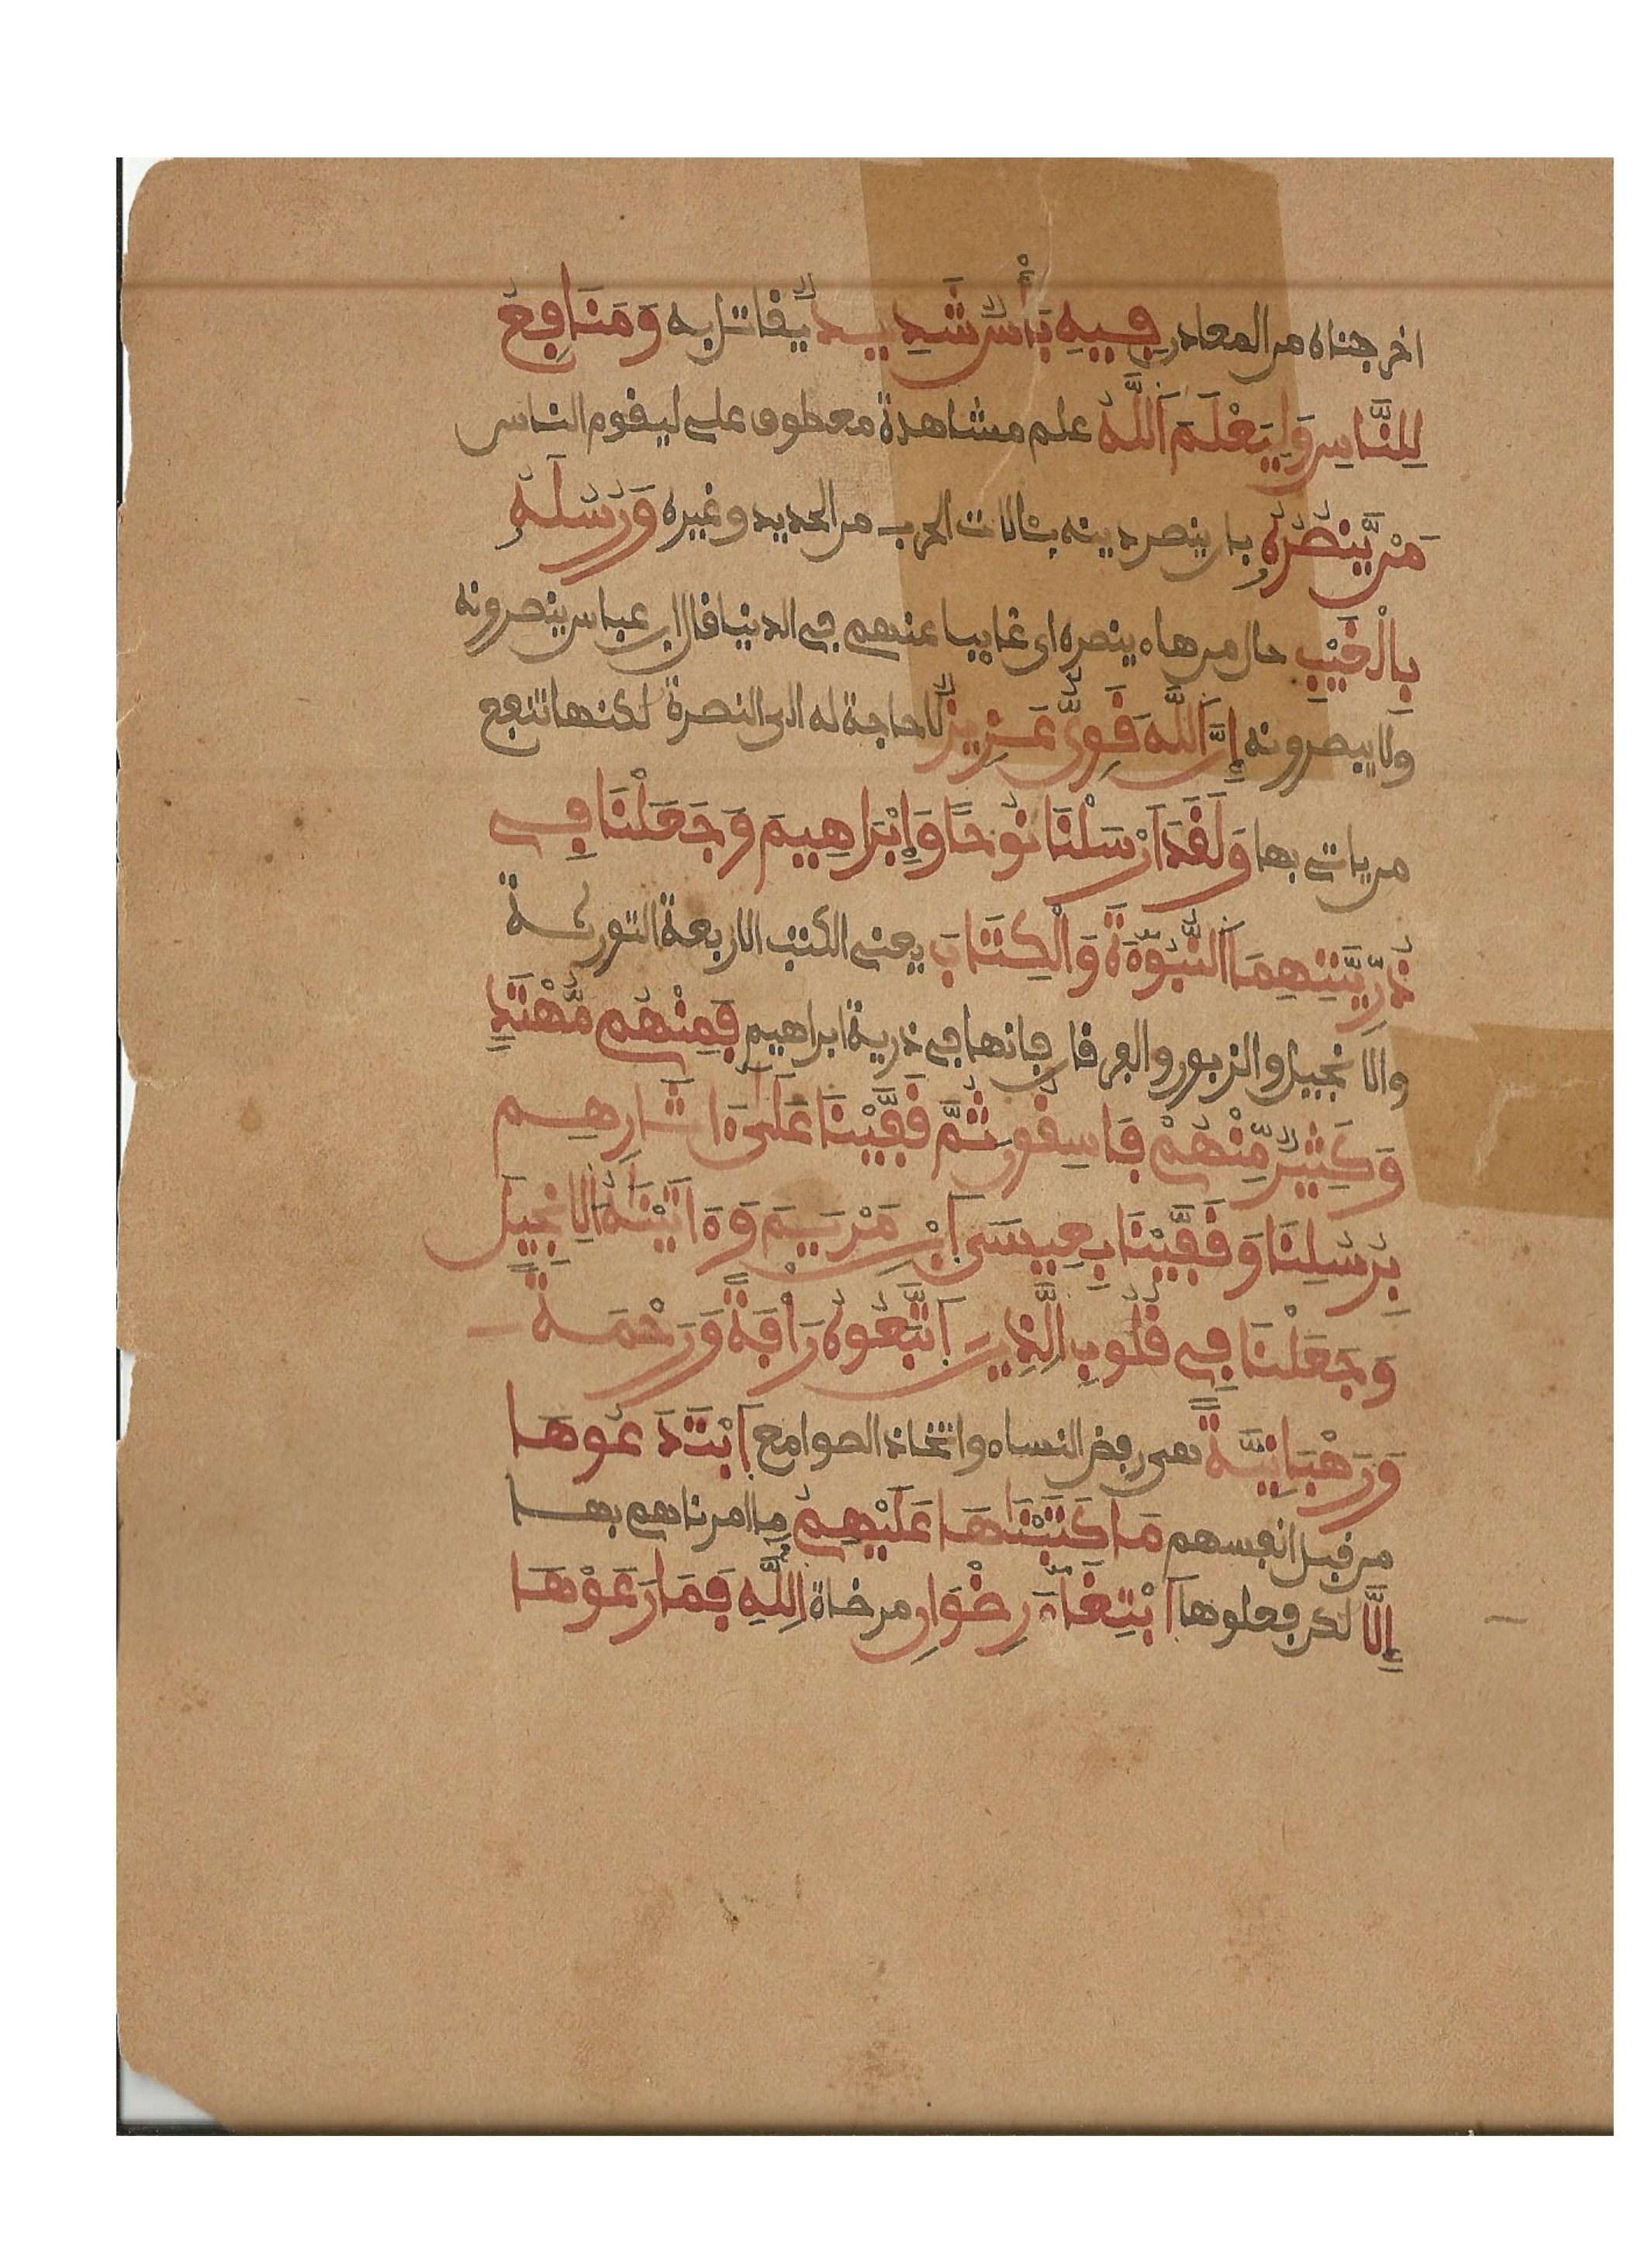 اخرجناه من المعادن فِيهِ بَأْسٌ شَدِيدٌ يقاتل به وَمَنَافِعُ
لِلنَّاسِ وَلِيَعْلَمَ اَللَّهُ علم مشاهدة معطوف على ليقوم الناس
مَنْ يَّنصُرُهُ بان ينصر دينه بئالات الحرب من الحديد وغيره وَرُسُلَهُ
بِالْغَيْبِ حال من هاء ينصره اى غايبا عنهم في الدنيا قال ابن عباس ينصرونه
ولا يبصرونه إِنَّ اَللَّهَ قَوِيٌّ عَزِيزٌ لا حاجة له الى النصرة لكنها تنفع
من ياتي بها وَلَقَدَ اَرْسَلْنَا نُوحًا وَإِبْرَاهِيمَ وَجَعَلْنَا فِي
ذُرِّيَّتِهِمَا اَلنُّبُوٓءَةَ وَالْكِتَابَ يعنى الكتب الاربعة التورىة
والانجيل والزبور والفرقان فانها في ذرية ابراهيم فَمِنْهُم مُّهْتَدٍ
وَكَثِيرٌ مِّنْهُمْ فَاسِقُونَ ثُمَّ قَفَّيْنَا عَلَىٰ ءَاثَارِهِم
بِرُسُلِنَا وَقَفَّيْنَا بِعِيسَى اَبْنِ مَرْيَمَ وَءَاتَيْنَاهُ اَلِانجِيلَ
وَجَعَلْنَا فِي قُلُوبِ اِلَّذِينَ اَتَّبَعُوهُ رَأْفَةً وَرَحْمَةً
وَرَهْبَانِيَّةً هى رفض النساء واتخاذ الصوامع اَبْتَدَعُوهَا
من قبل انفسهم مَا كَتَبْنَاهَا عَلَيْهِمُ ما امرناهم بها
إِلَّا لكن فعلوها اَبْتِغَآءَ رِضْوَانِ مرضاة اِللَّهِ فَمَا رَعَوْهَا